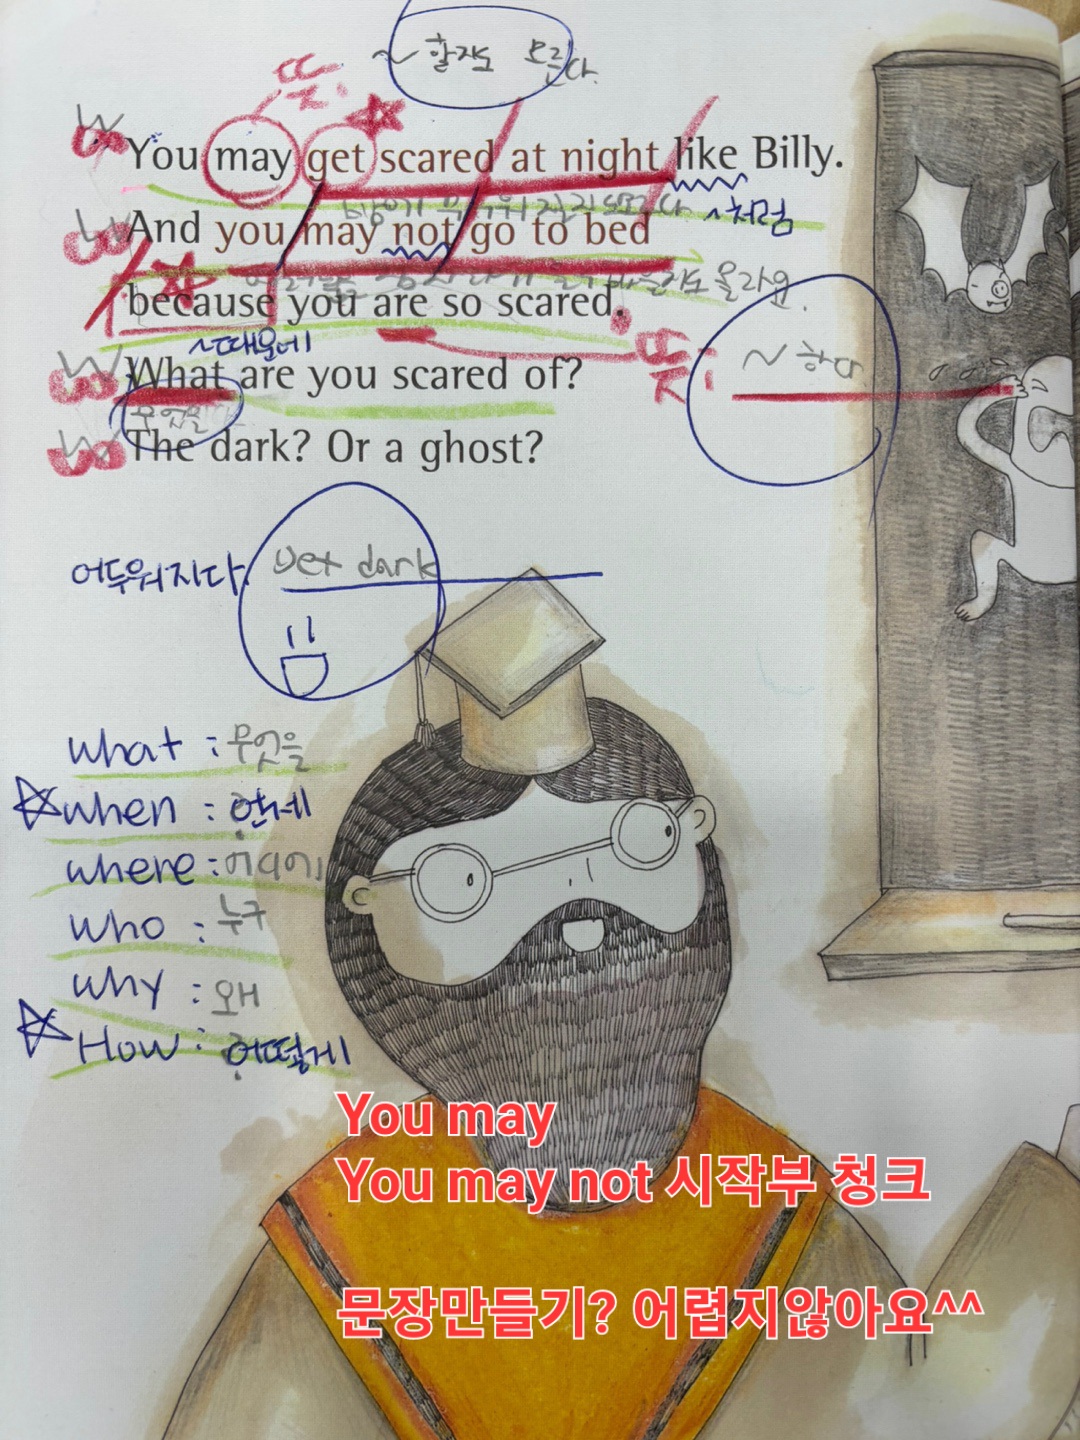 ~ 할지도 모른다.
뜻:
You may get scared at night like Billy.
~처럼
And you may not go to bed
because you are so scared.
~때문에
뜻: ~ 하다
What are you scared of?
무엇을
The dark? Or a ghost?
어두워지다. get dark
what : 무엇을
when : 언제
where : 어디에
who : 누구
why : 왜
How : 어떻게
You may
You may not 시작부 청크
문장만들기? 어렵지않아요^^